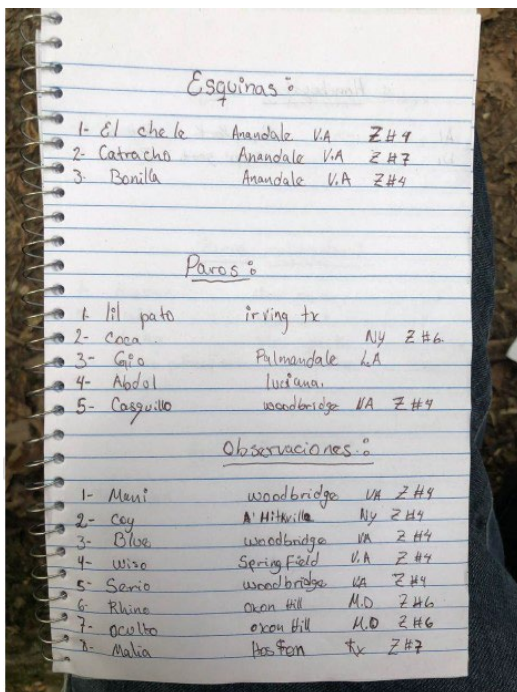 Esquinas :
1- El chele Anandale V.A Z#9
2- Catracho Anandale V.A Z#7
3- Bonilla Anandale V.A Z#4
Paros :
1 lil pato irving tx
2- Coca. NY Z#6.
3- Gio Palmandale LA
4- Abdol luciana.
5- Casquillo woodbridge VA Z#4
Observaciones. :
1- Mani woodbridge VA Z#4
2- Coy NY Z#4
3- Blue woodbridge VA Z#4
4- Wiso SpringField V.A Z#4
5- Serio woodbridge VA Z#4
6- Rhino oxon Hill M.D Z#6
7- Oculto oxon Hill M.D Z#6
8- Malia tx Z#7